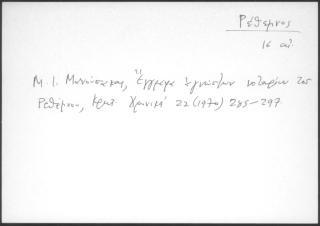 Ρέθεμνος
16 αἰ.
Μ. Ι. Μανούσακας, Ἔγγραφα ἀγνώστων νοταρίων τοῦ
Ρεθέμνου, Κρητ. Χρονικά 22 (1970) 285-297.